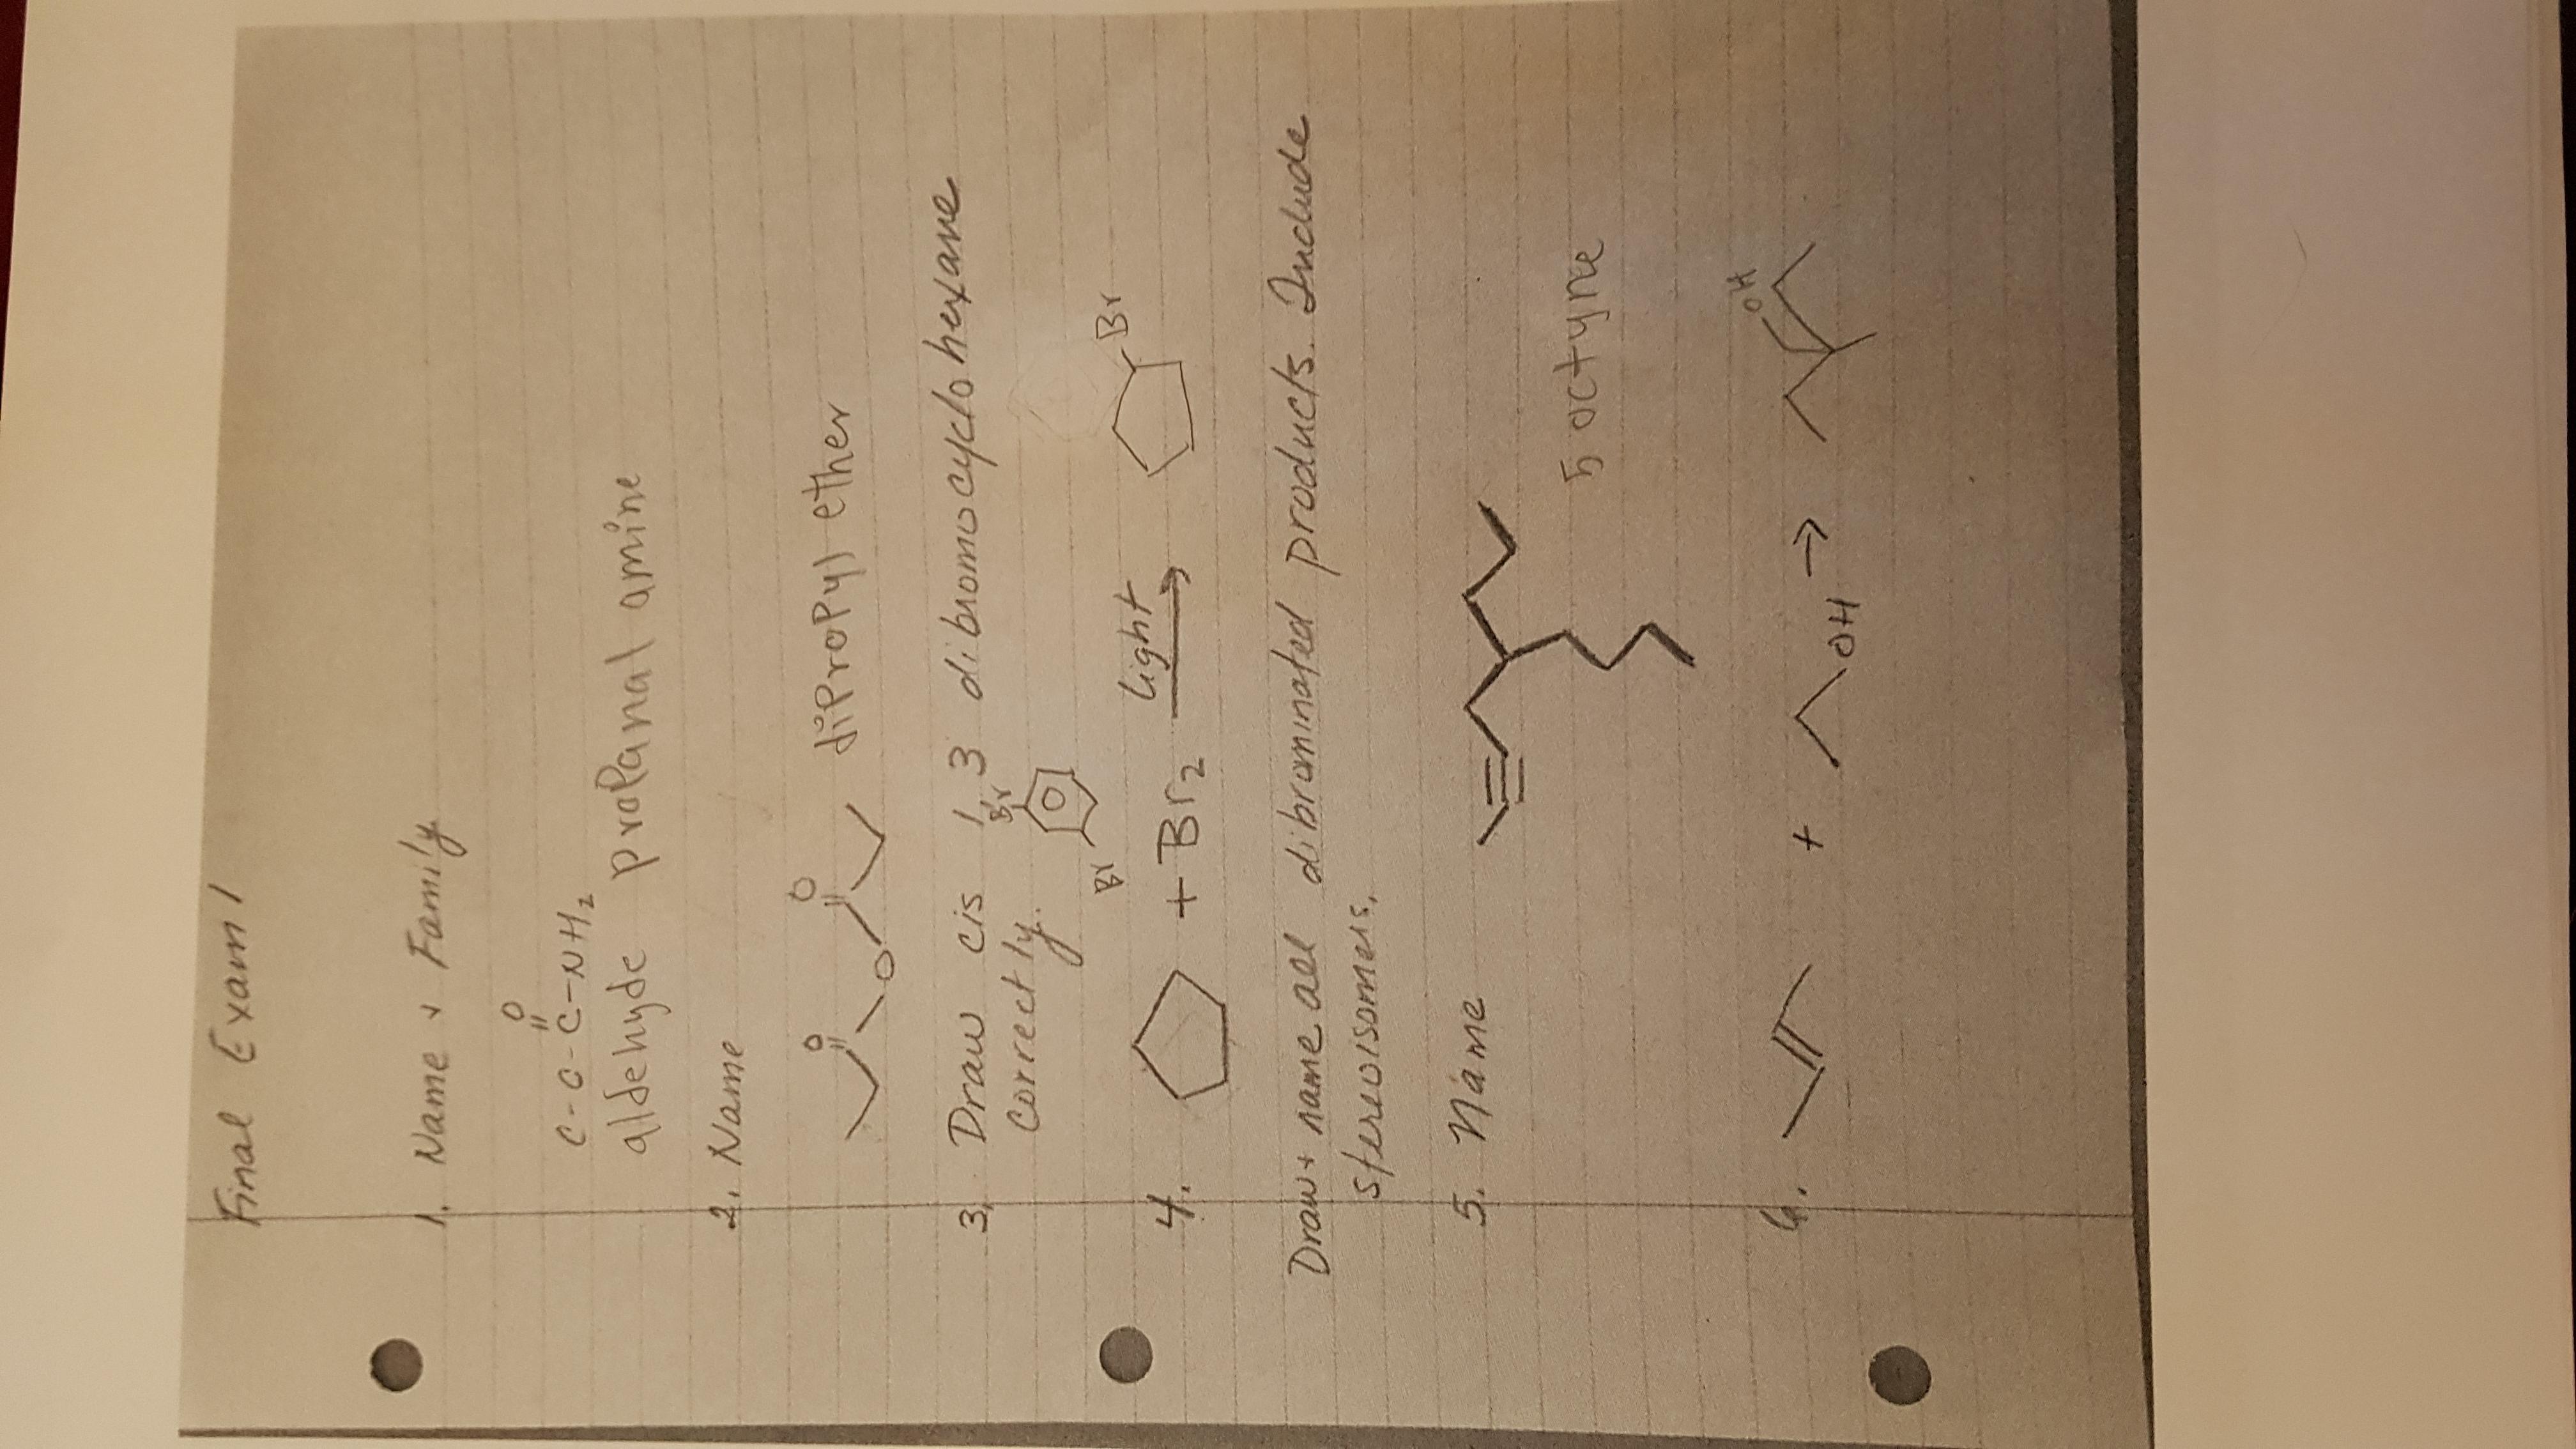 Final Exam 1
1. Name + Family
O
C-C-C-NH2
aldehyde propanal amine
2. Name
O O
O dipropyl ether
3. Draw cis 1,3 dibromocyclohexane
correctly. Br
Br
4. + Br2 light Br
Draw + name all dibrominated products. Include
stereoisomers.
5. Name
5 octyne
6. + OH → OH